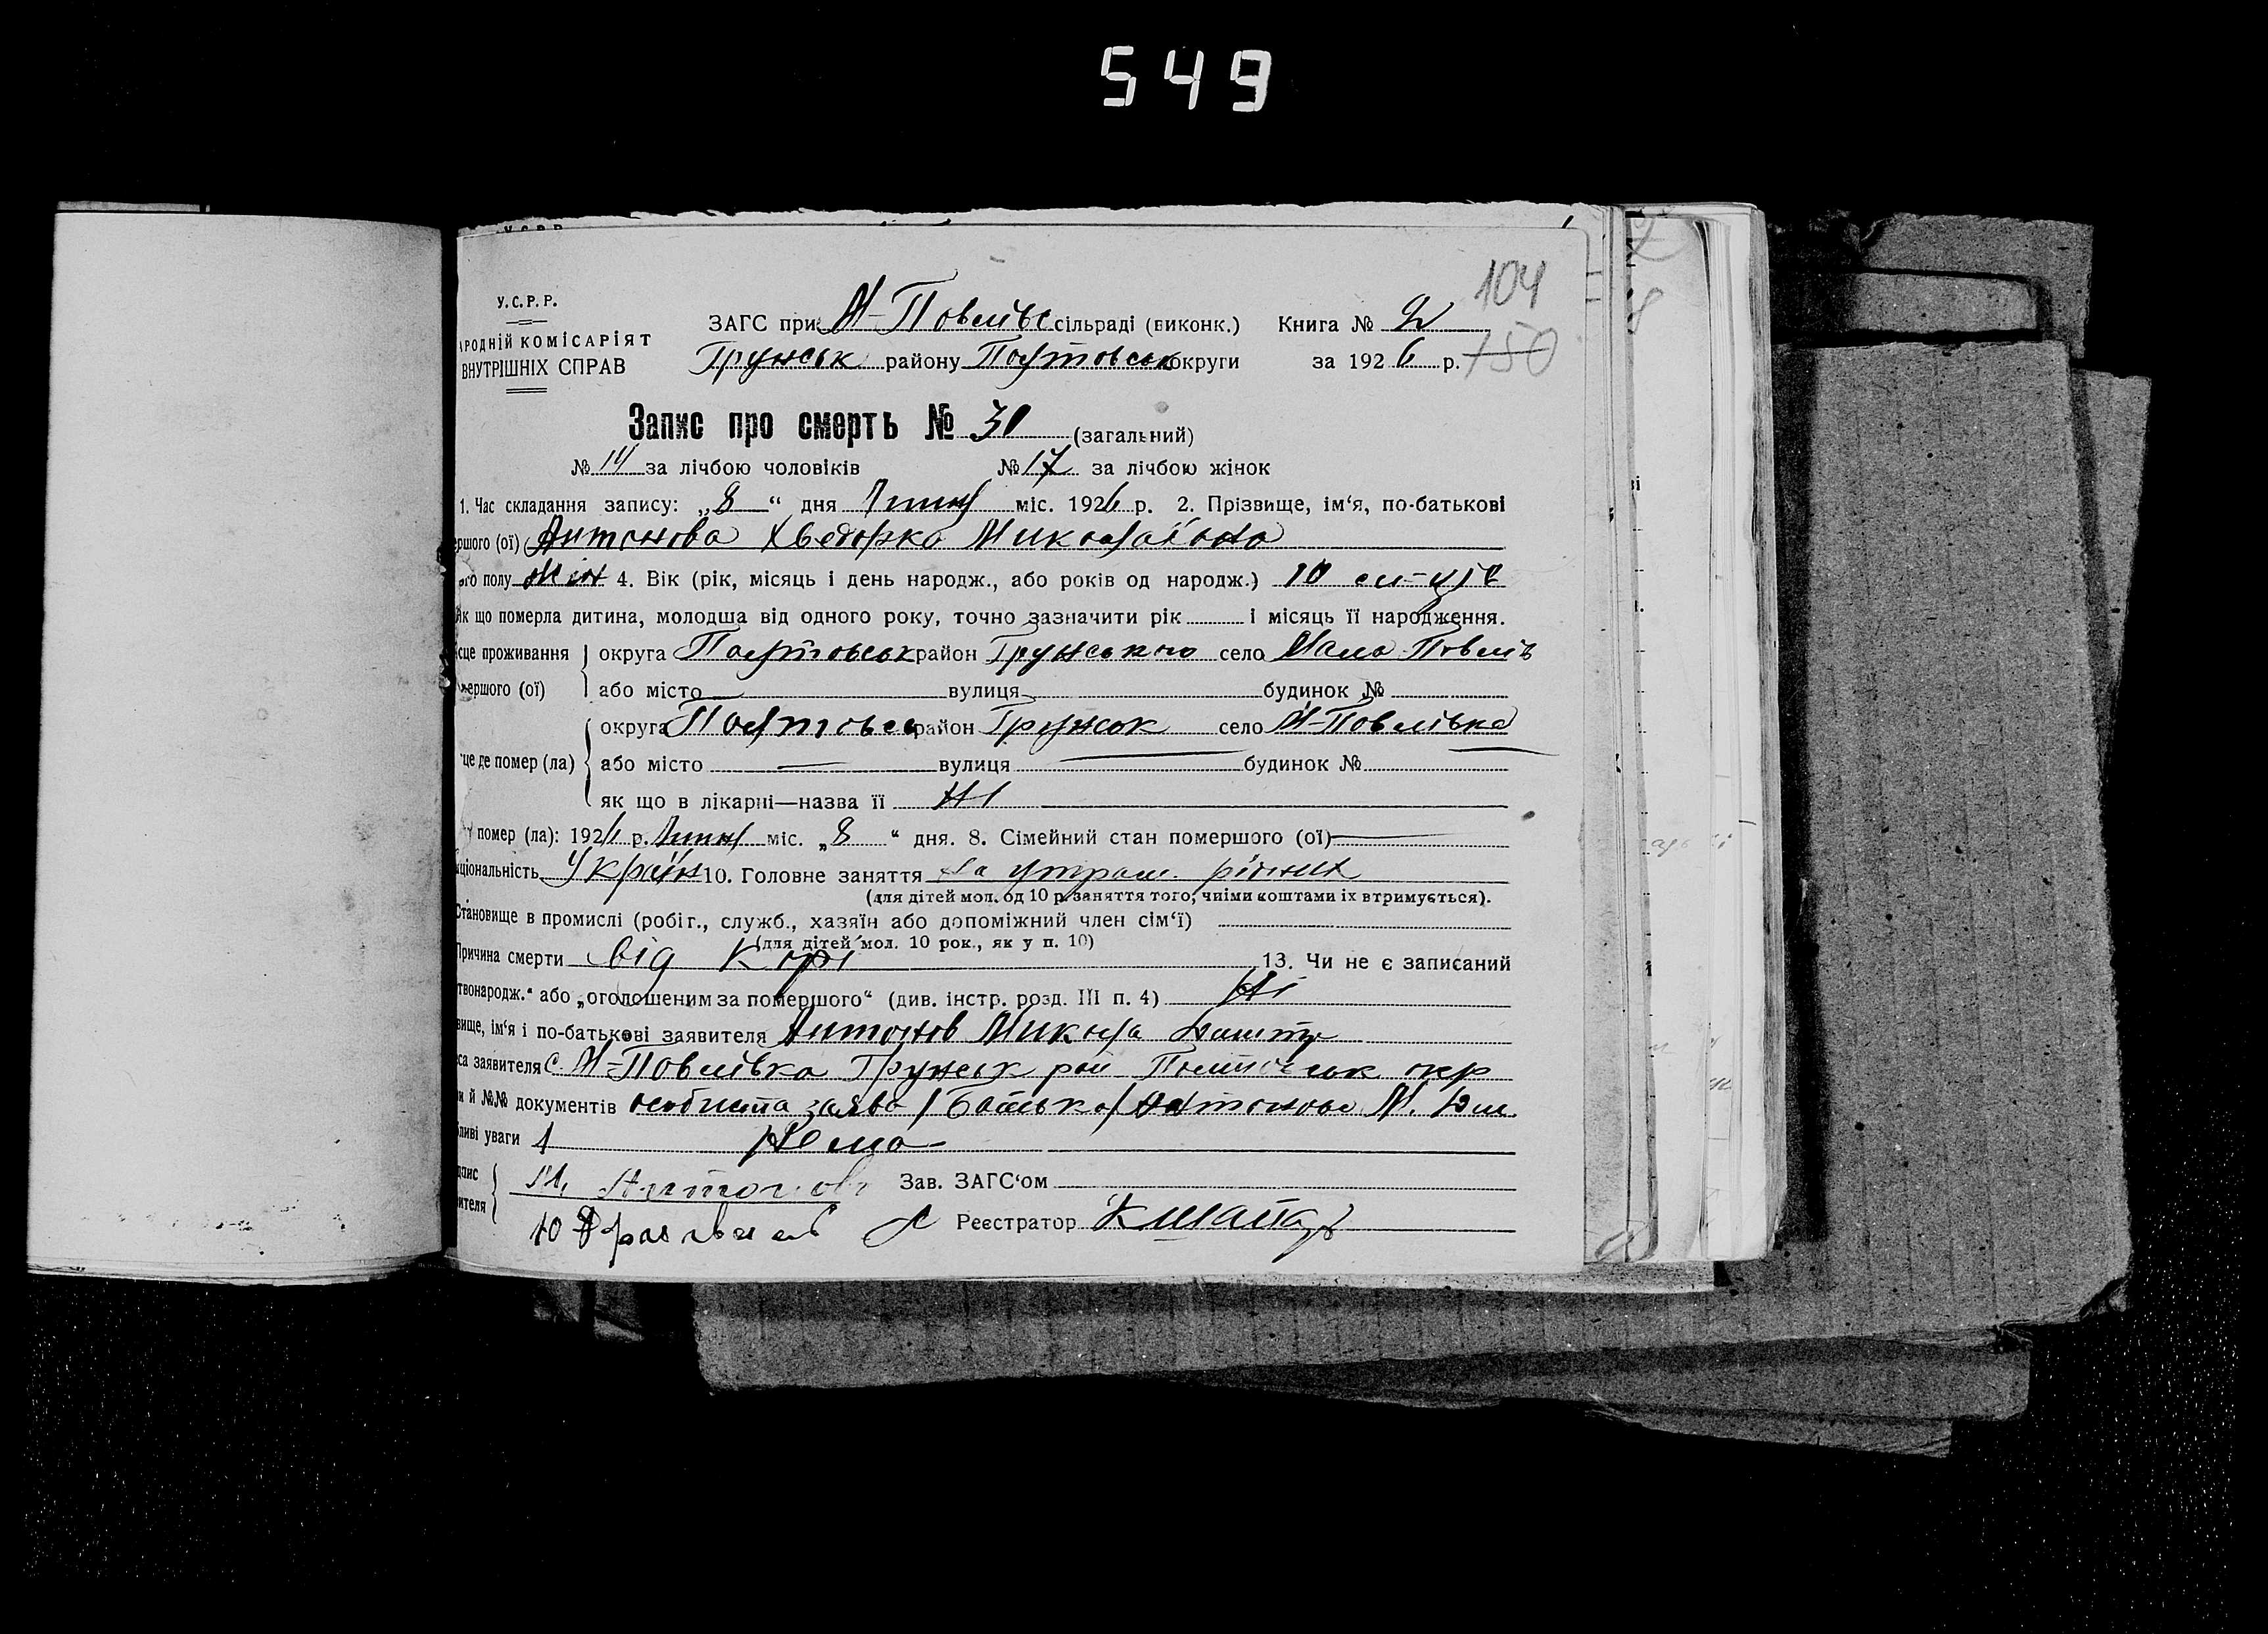 549
104
У.С.Р.Р.
АРОДНІЙ КОМІСАРІЯТ
ВНУТРІШНІХ СПРАВ
ЗАГС при М-Повлівс сільраді (виконк.) Книга № 2
150
Грунськ району Полтовськ округи за 1926 р.
Запис про смерть № 31 (загальний)
№ 14 за лічбою чоловіків № 17 за лічбою жінок
1. Час складання запису: „8“ дня Липня міс. 1926 р. 2. Прізвище, ім‘я, по-батькові
ршого (ої) Антонова Хведорка Миколаївна
ого полу жін 4. Вік (рік, місяць і день народж., або років од народж.) 10
Як що померла дитина, молодша від одного року, точно зазначити рік і місяць її народження.
сце проживання округа Полтовськ район Грунського село Мала Повлів
мершого (ої) або місто вулиця будинок №
округа Полтовсь район Грунсок село М-Повлівка
це де помер (ла) або місто вулиця будинок №
як що в лікарні—назва її Ні
помер (ла): 1926 р. Липн міс. „8“ дня. 8. Сімейний стан помершого (ої)
ціональність Україн 10. Головне заняття На утрим. рідних
(для дітей мол. од 10 р. заняття того, чиїми коштами їх втримується).
Становище в промислі (робіг., служб., хазяїн або допоміжний член сім‘ї)
(для дітей мол. 10 рок., як у п. 10)
Причина смерти від Корі 13. Чи не є записаний
твонародж.“ або „оголошеним за помершого“ (див. інстр. розд. III п. 4) Ні
вище, ім‘я і по-батькові заявителя Антонов Микола
са заявителя с. М-Повлівка Грунськ рай Полтовськ окр
и й №№ документів особиста заява / батька / Антонова М.
ливі уваги Нема
дпис М. Антонов Зав. ЗАГС‘ом
ителя Реєстратор